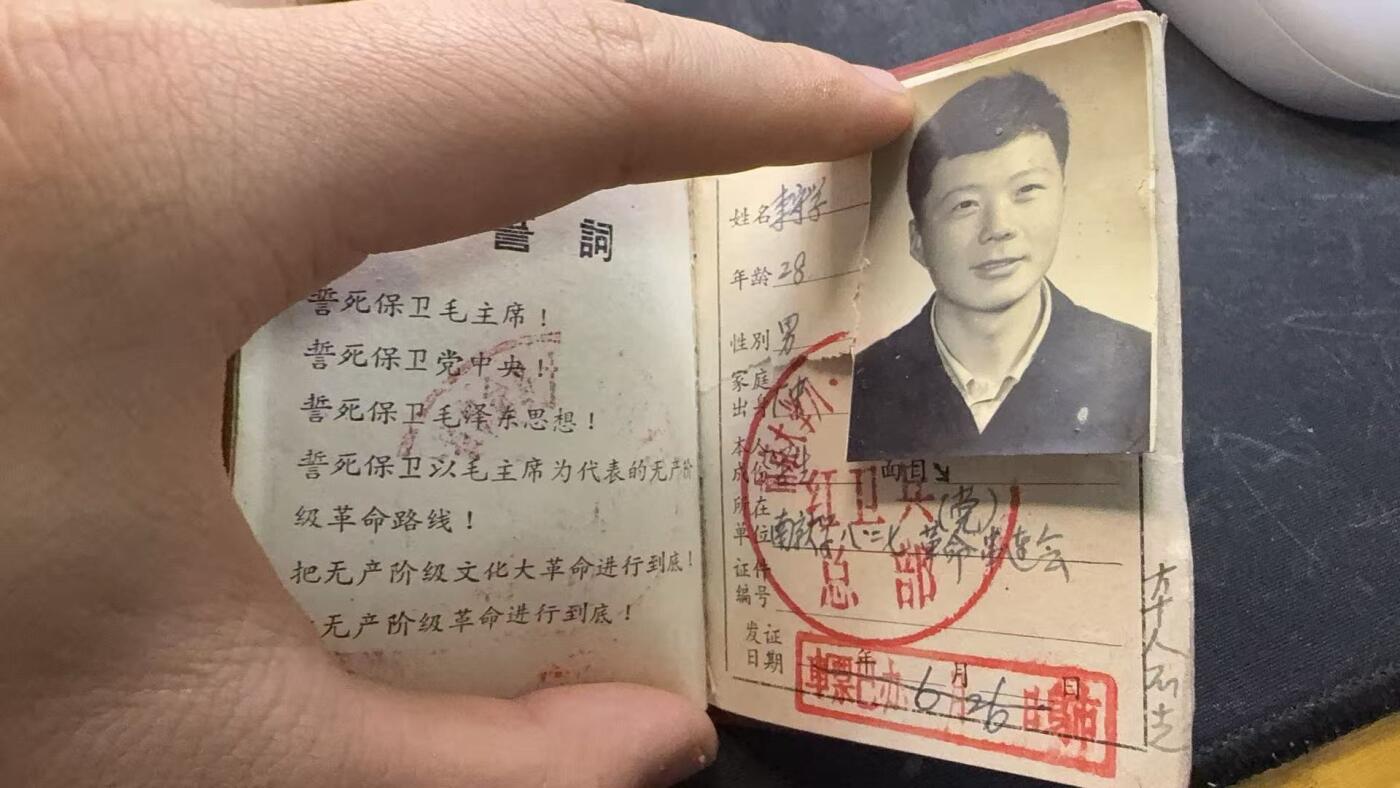 誓詞
誓死保卫毛主席！
誓死保卫党中央！
誓死保卫毛泽东思想！
誓死保卫以毛主席为代表的无产阶
级革命路线！
把无产阶级文化大革命进行到底！
无产阶级革命进行到底！
姓名
年龄 28
性别 男
家庭
出身
本人
成份
所在
单位 八二七革命串连会
(党)
证件
编号
发证
日期 年 6月26日
红卫兵
总部